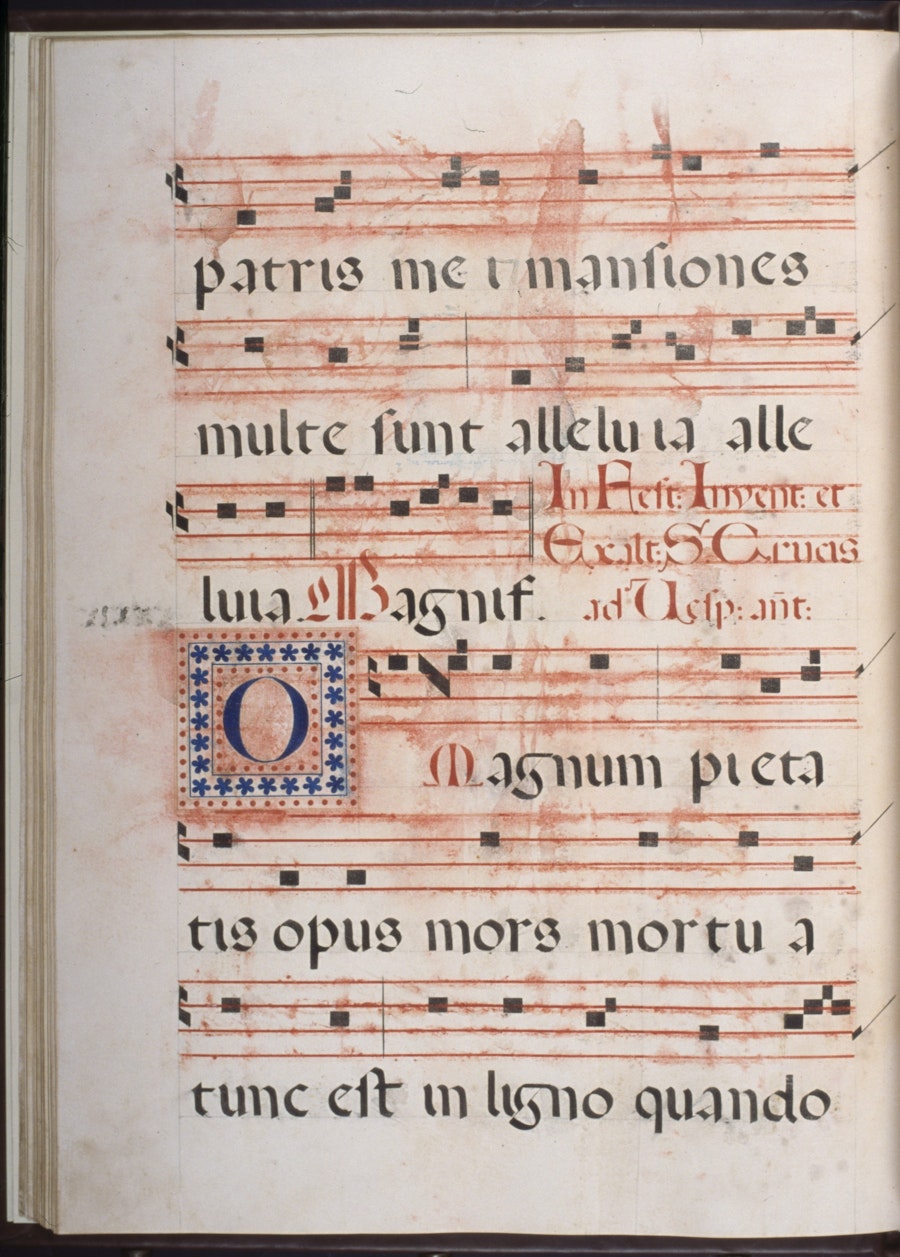 patris me i manſiones
multe ſunt alleluia alle
In Feſt: Invent: et
Exalt: S. Crucis
luia Magnif. ad Veſp: añt:
O Magnum pieta
tis opus mors mortu a
tunc eſt in ligno quando